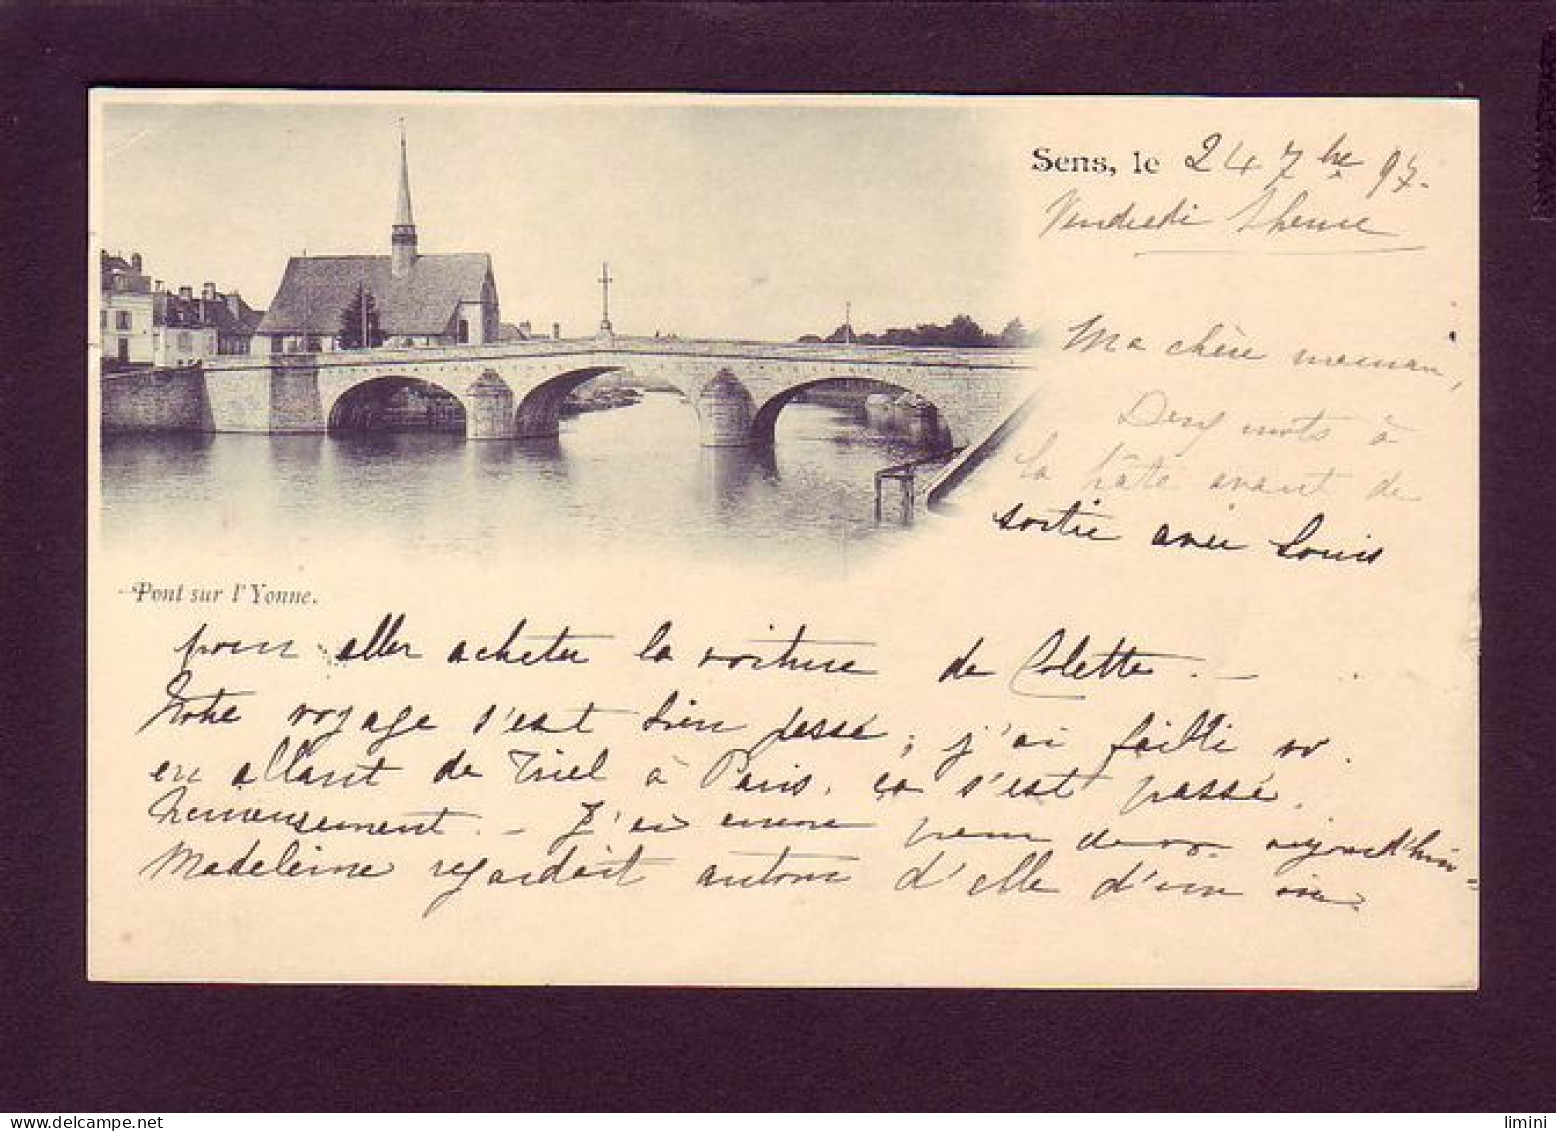 Sens, le 24 7bre 97.
Vendredi 1 heure
Ma chère maman,
Deux mots à
la hâte avant de
sortir avec Louis
Pont sur l'Yonne.
pour aller acheter la voiture de Colette. -
Notre voyage s'est bien passé ; j'ai failli
en allant de Triel à Paris, ça s'est passé
heureusement. - J'ai encore peur aujourd'hui -
Madeleine regardait autour d'elle d'un
limini
delcampe.net